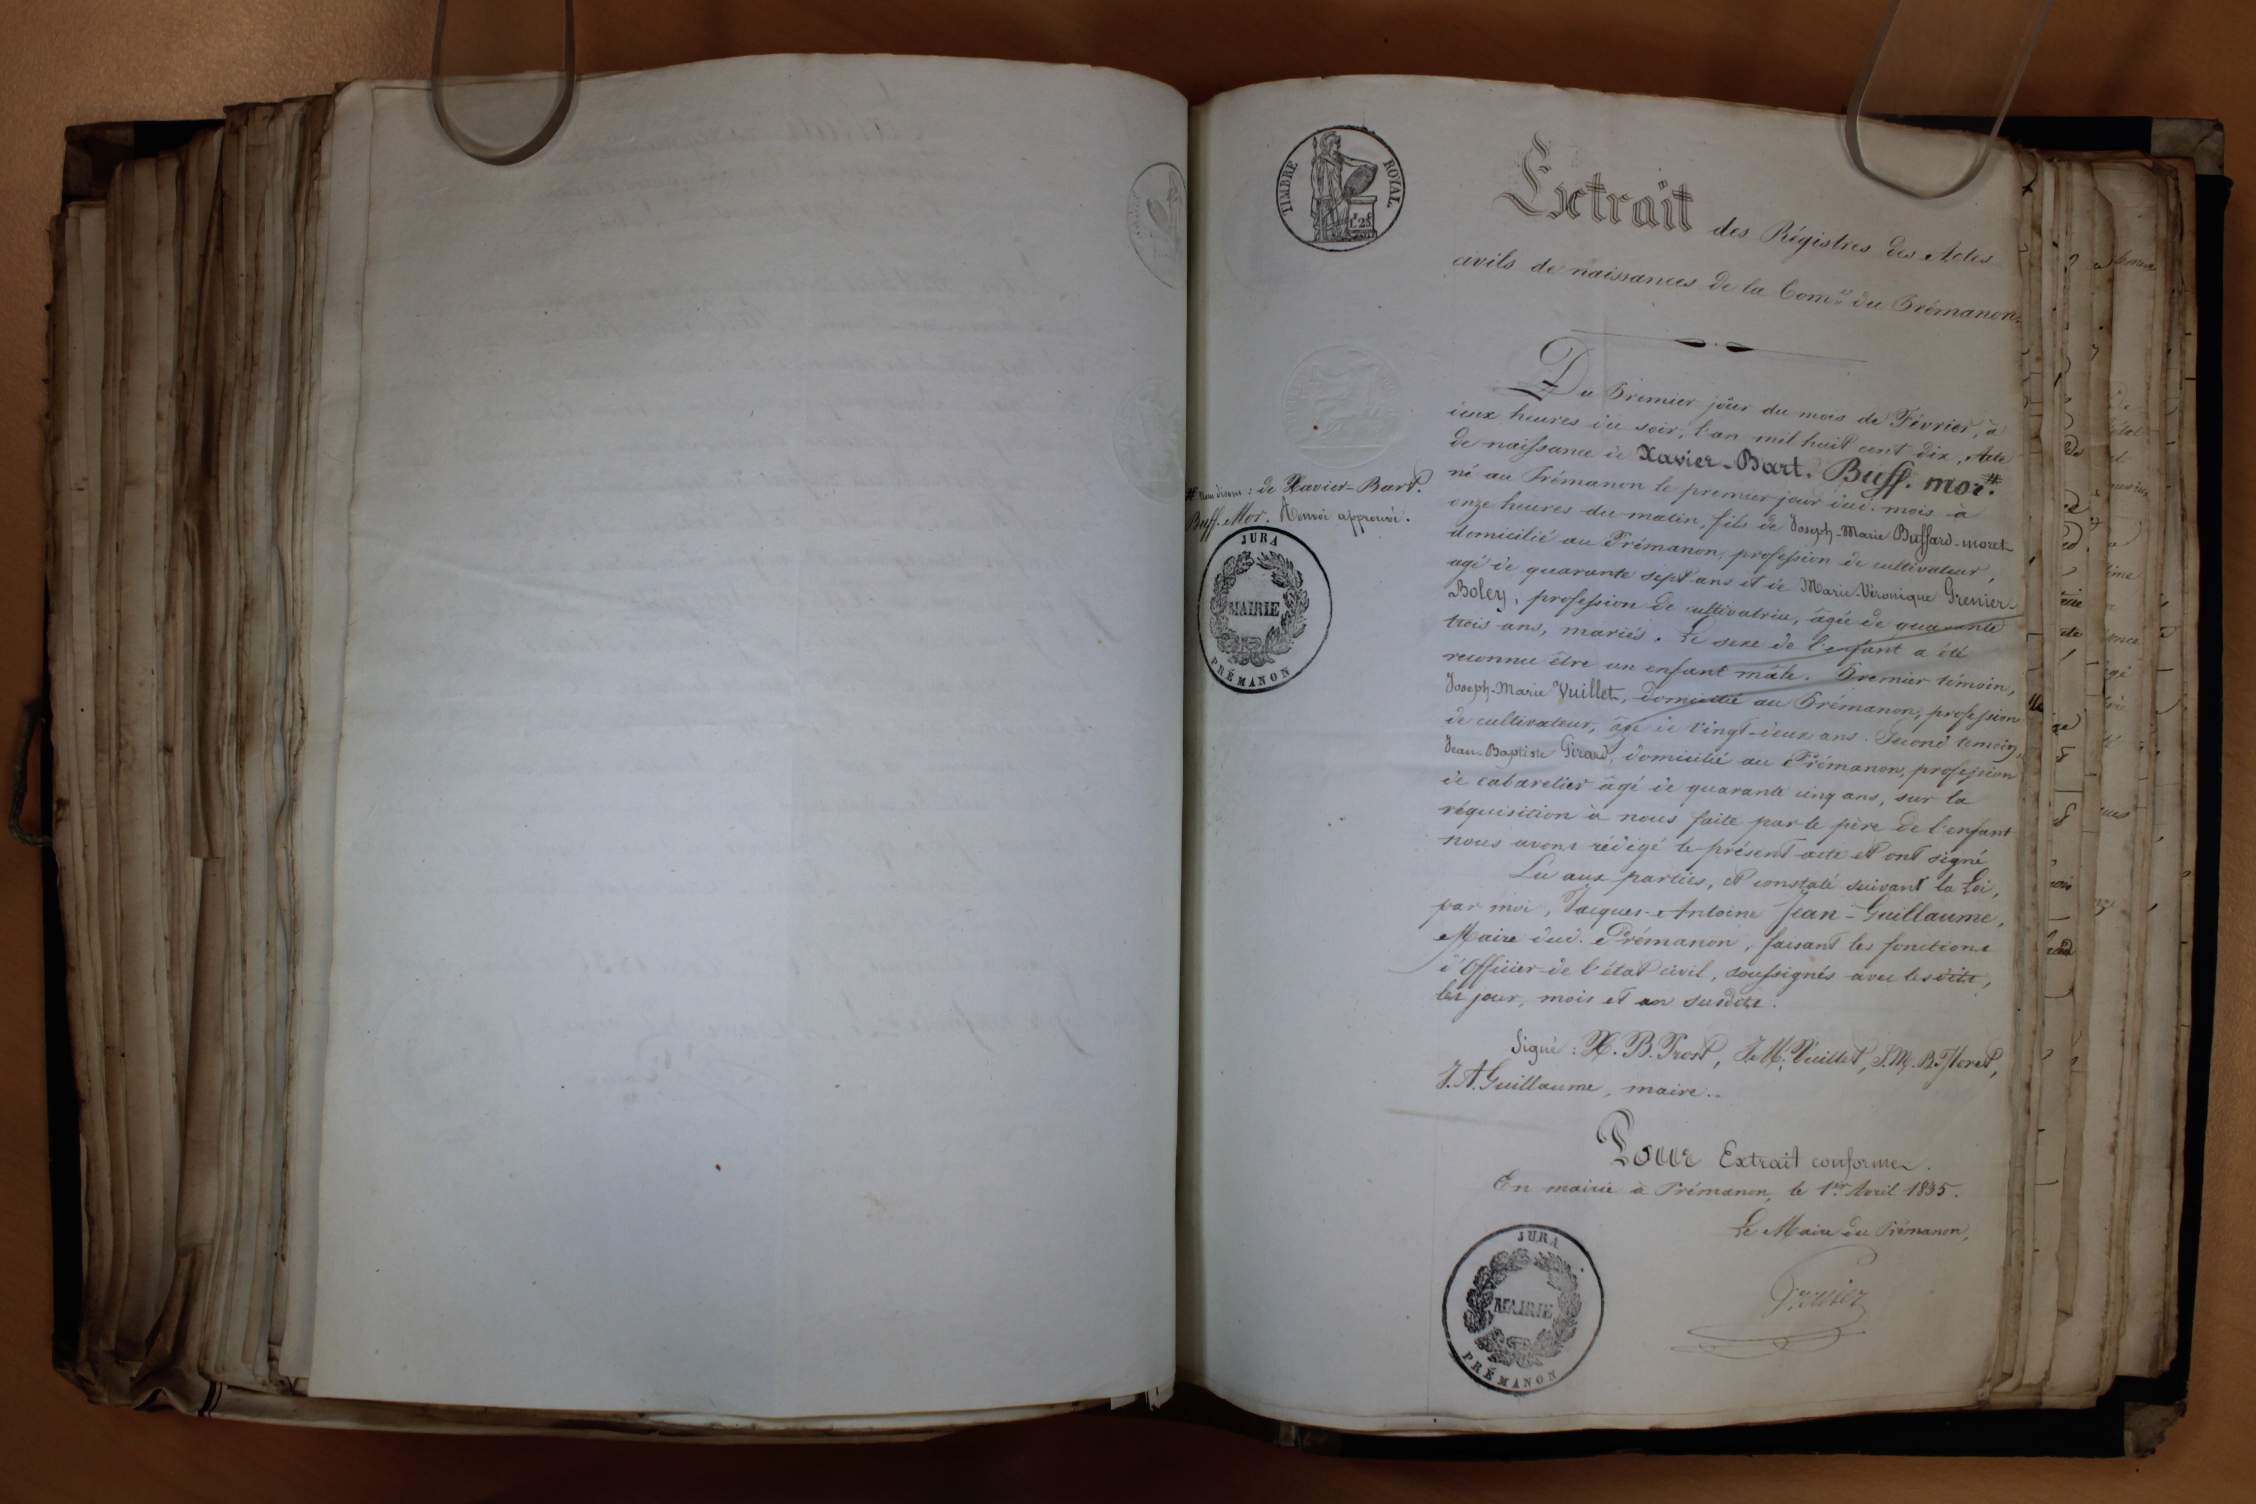 TIMBRE ROYAL
1F 25
Extrait des Régistres des Actes
civils de naissances de la Comne du Prémanon.
Du Premier jour du mois de Février, à
deux heures du soir, l'an mil huit cent dix, Acte
de naissance de Xavier-Bart. Buff. mor.#
né au Prémanon le premier jour dud. mois à
onze heures du matin, fils de Joseph-Marie Buffard-moret
domicilié au Prémanon, profession de cultivateur,
agé de quarante sept ans et de Marie-Véronique Grenier-
Boley, profession de cultivatrice, âgée de quarante
trois ans, mariés. Le sexe de l'enfant a été
reconnu être un enfant mâle. Premier témoin,
Joseph-Marie Vuillet, domicilié au Prémanon, profession
de cultivateur, âgé de vingt-deux ans. Second temoin,
Jean-Baptiste Girard, domicilié au Prémanon, profession
de cabaretier âgé de quarante cinq ans, sur la
réquisition à nous faite par le père de l'enfant
nous avons rédigé le présent acte et ont signé
Lu aux parties, et constaté suivant la Loi,
par moi, Jacques-Antoine Jean-Guillaume,
Maire dud. Prémanon, faisant les fonctions
d'Officier de l'état civil, soussignés avec lesdits,
les jour, mois et an susdits.
Signé : X. B. Prost, J. M. Vuillet, J. M. B. Moret,
J. A. Guillaume, maire..
Pour Extrait conforme.
En mairie à Prémanon, le 1er Avril 1835.
Le Maire du Prémanon,
# Nous disons : de Xavier-Bart.
Buff. Mor. Renvoi approuvé.
JURA
MAIRIE
PRÉMANON
JURA
MAIRIE
PRÉMANON